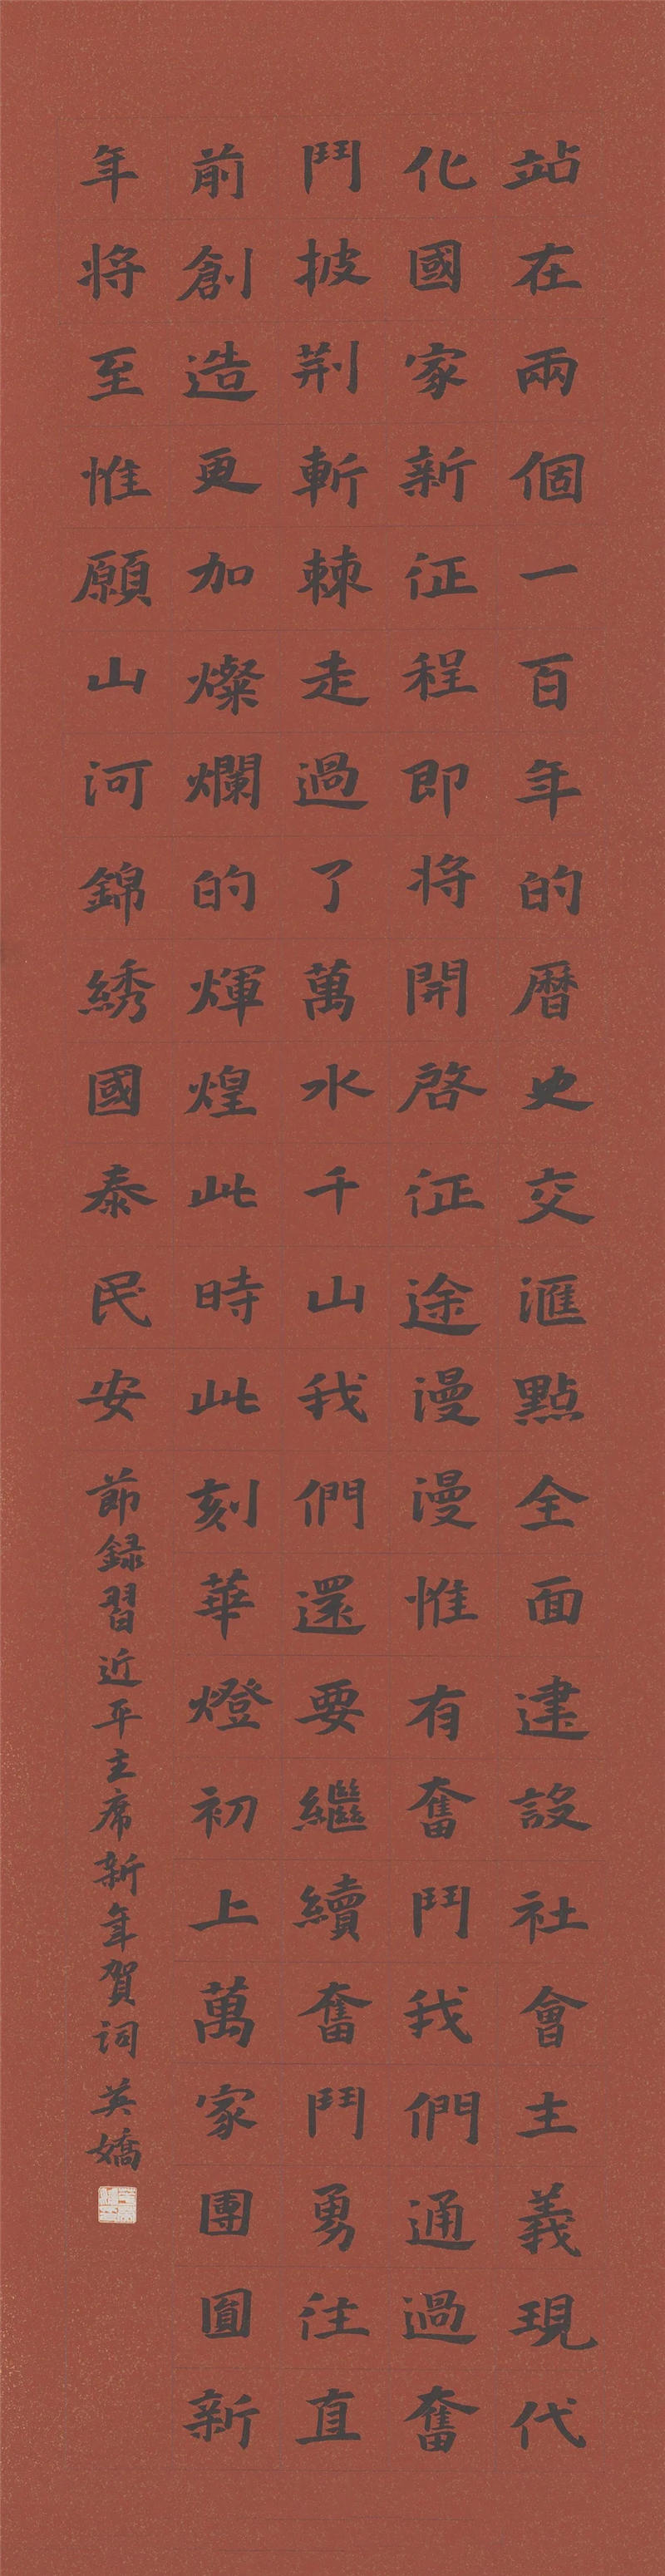 站在兩個一百年的曆史交滙點全面建設社會主義現代
化國家新征程即將開啓征途漫漫惟有奮鬥我們通過奮
鬥披荆斬棘走過了萬水千山我們還要繼續奮鬥勇往直
前創造更加燦爛的輝煌此時此刻華燈初上萬家團圓新
年将至惟願山河錦綉國泰民安
節録習近平主席新年賀詞 英嬌